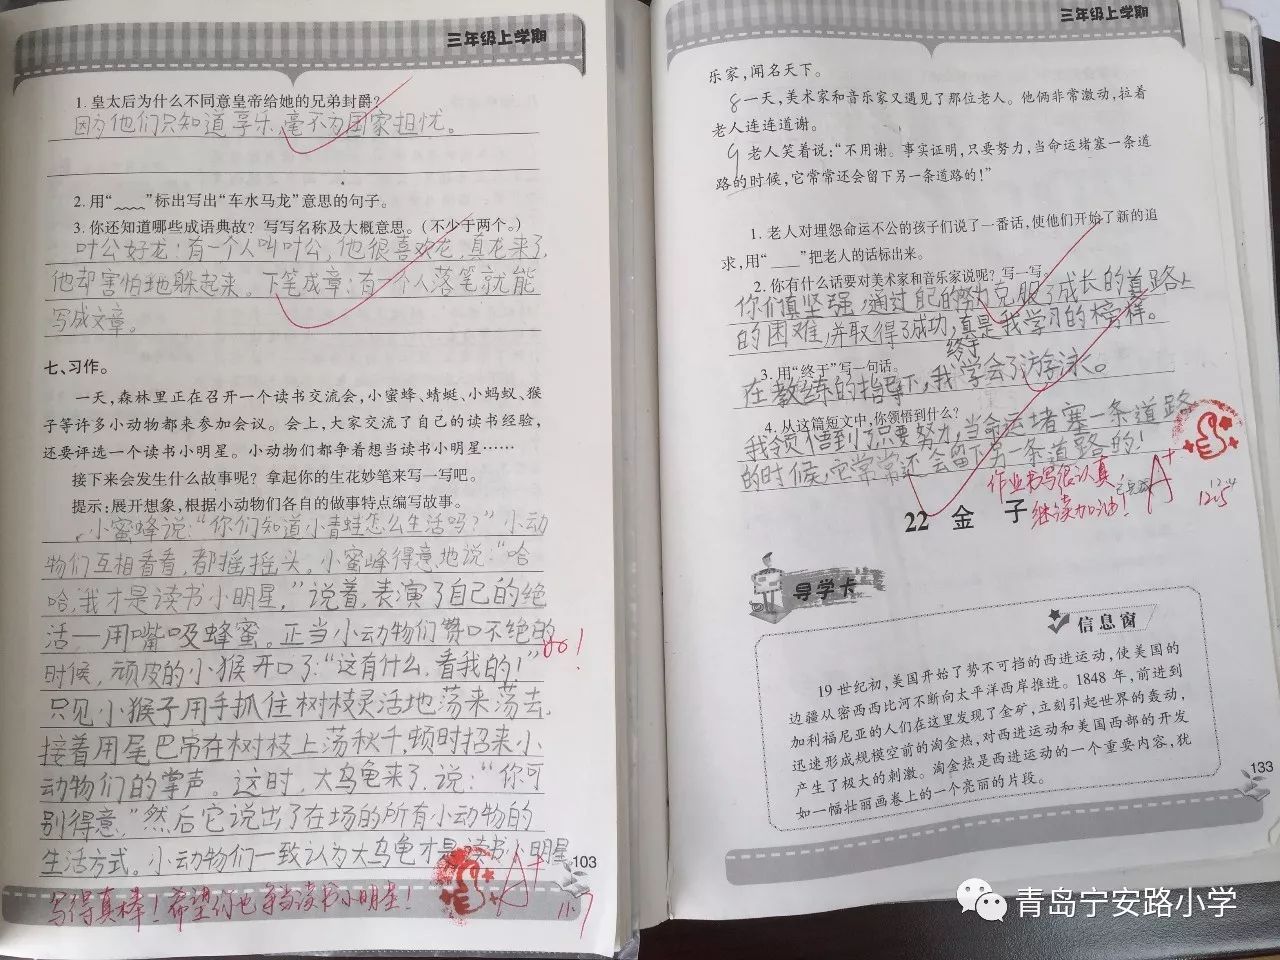 三年级上学期
1. 皇太后为什么不同意皇帝给她的兄弟封爵?
因为他们只知道享乐,毫不为国家担忧。
2. 用“﹏﹏”标出写出“车水马龙”意思的句子。
3. 你还知道哪些成语典故? 写写名称及大概意思。(不少于两个。)
叶公好龙:有一个人叫叶公,他很喜欢龙,真龙来了,
他却害怕地躲起来。下笔成章:有一个人落笔就能
写成文章。
七、习作。
一天,森林里正在召开一个读书交流会,小蜜蜂、蜻蜓、小蚂蚁、猴
子等许多小动物都来参加会议。会上,大家交流了自己的读书经验,
还要评选一个读书小明星。小动物们都争着想当读书小明星……
接下来会发生什么故事呢? 拿起你的生花妙笔来写一写吧。
提示:展开想象,根据小动物们各自的做事特点编写故事。
小蜜蜂说:“你们知道小青蛙怎么生活吗?”小动
物们互相看看,都摇摇头。小蜜峰得意地说:“哈
哈,我才是读书小明星,”说着,表演了自己的绝
活—用嘴吸蜂蜜。正当小动物们赞口不绝的
时候,顽皮的小猴开口了:“这有什么,看我的!”
只见小猴子用手抓住树枝灵活地荡来荡去,
接着用尾巴吊在树枝上荡秋千,顿时招来小
动物们的掌声。这时,大乌龟来了,说:“你可
别得意,”然后它说出了在场的所有小动物的
生活方式。小动物们一致认为大乌龟才是读书小明星。
103
写得真棒!希望你也争当读书小明星!
A+
11.7
三年级上学期
乐家,闻名天下。
8 一天,美术家和音乐家又遇见了那位老人。他俩非常激动,拉着
老人连连道谢。
9 老人笑着说:“不用谢。事实证明,只要努力,当命运堵塞一条道
路的时候,它常常还会留下另一条道路的!”
1. 老人对埋怨命运不公的孩子们说了一番话,使他们开始了新的追
求,用“____”把老人的话标出来。
2. 你有什么话要对美术家和音乐家说呢? 写一写。
你们真坚强,通过自己的努力克服了成长的道路上
的困难,并取得了成功,真是我学习的榜样。
3. 用“终于”写一句话。
终于
在教练的指导下,我学会了游泳。
4. 从这篇短文中,你领悟到什么?
我领悟到了只要努力,当命运堵塞一条道路
的时候,它常常还会留下另一条道路的!
作业书写很认真,
继续加油!
A+
12.5
22 金 子
导学卡
信息窗
19 世纪初,美国开始了势不可挡的西进运动,使美国的
边疆从密西西比河不断向太平洋西岸推进。1848 年,前进到
加利福尼亚的人们在这里发现了金矿,立刻引起世界的轰动,
迅速形成规模空前的淘金热,对西进运动和美国西部的开发
产生了极大的刺激。淘金热是西进运动的一个重要内容,犹
如一幅壮丽画卷上的一个亮丽的片段。
133
青岛宁安路小学